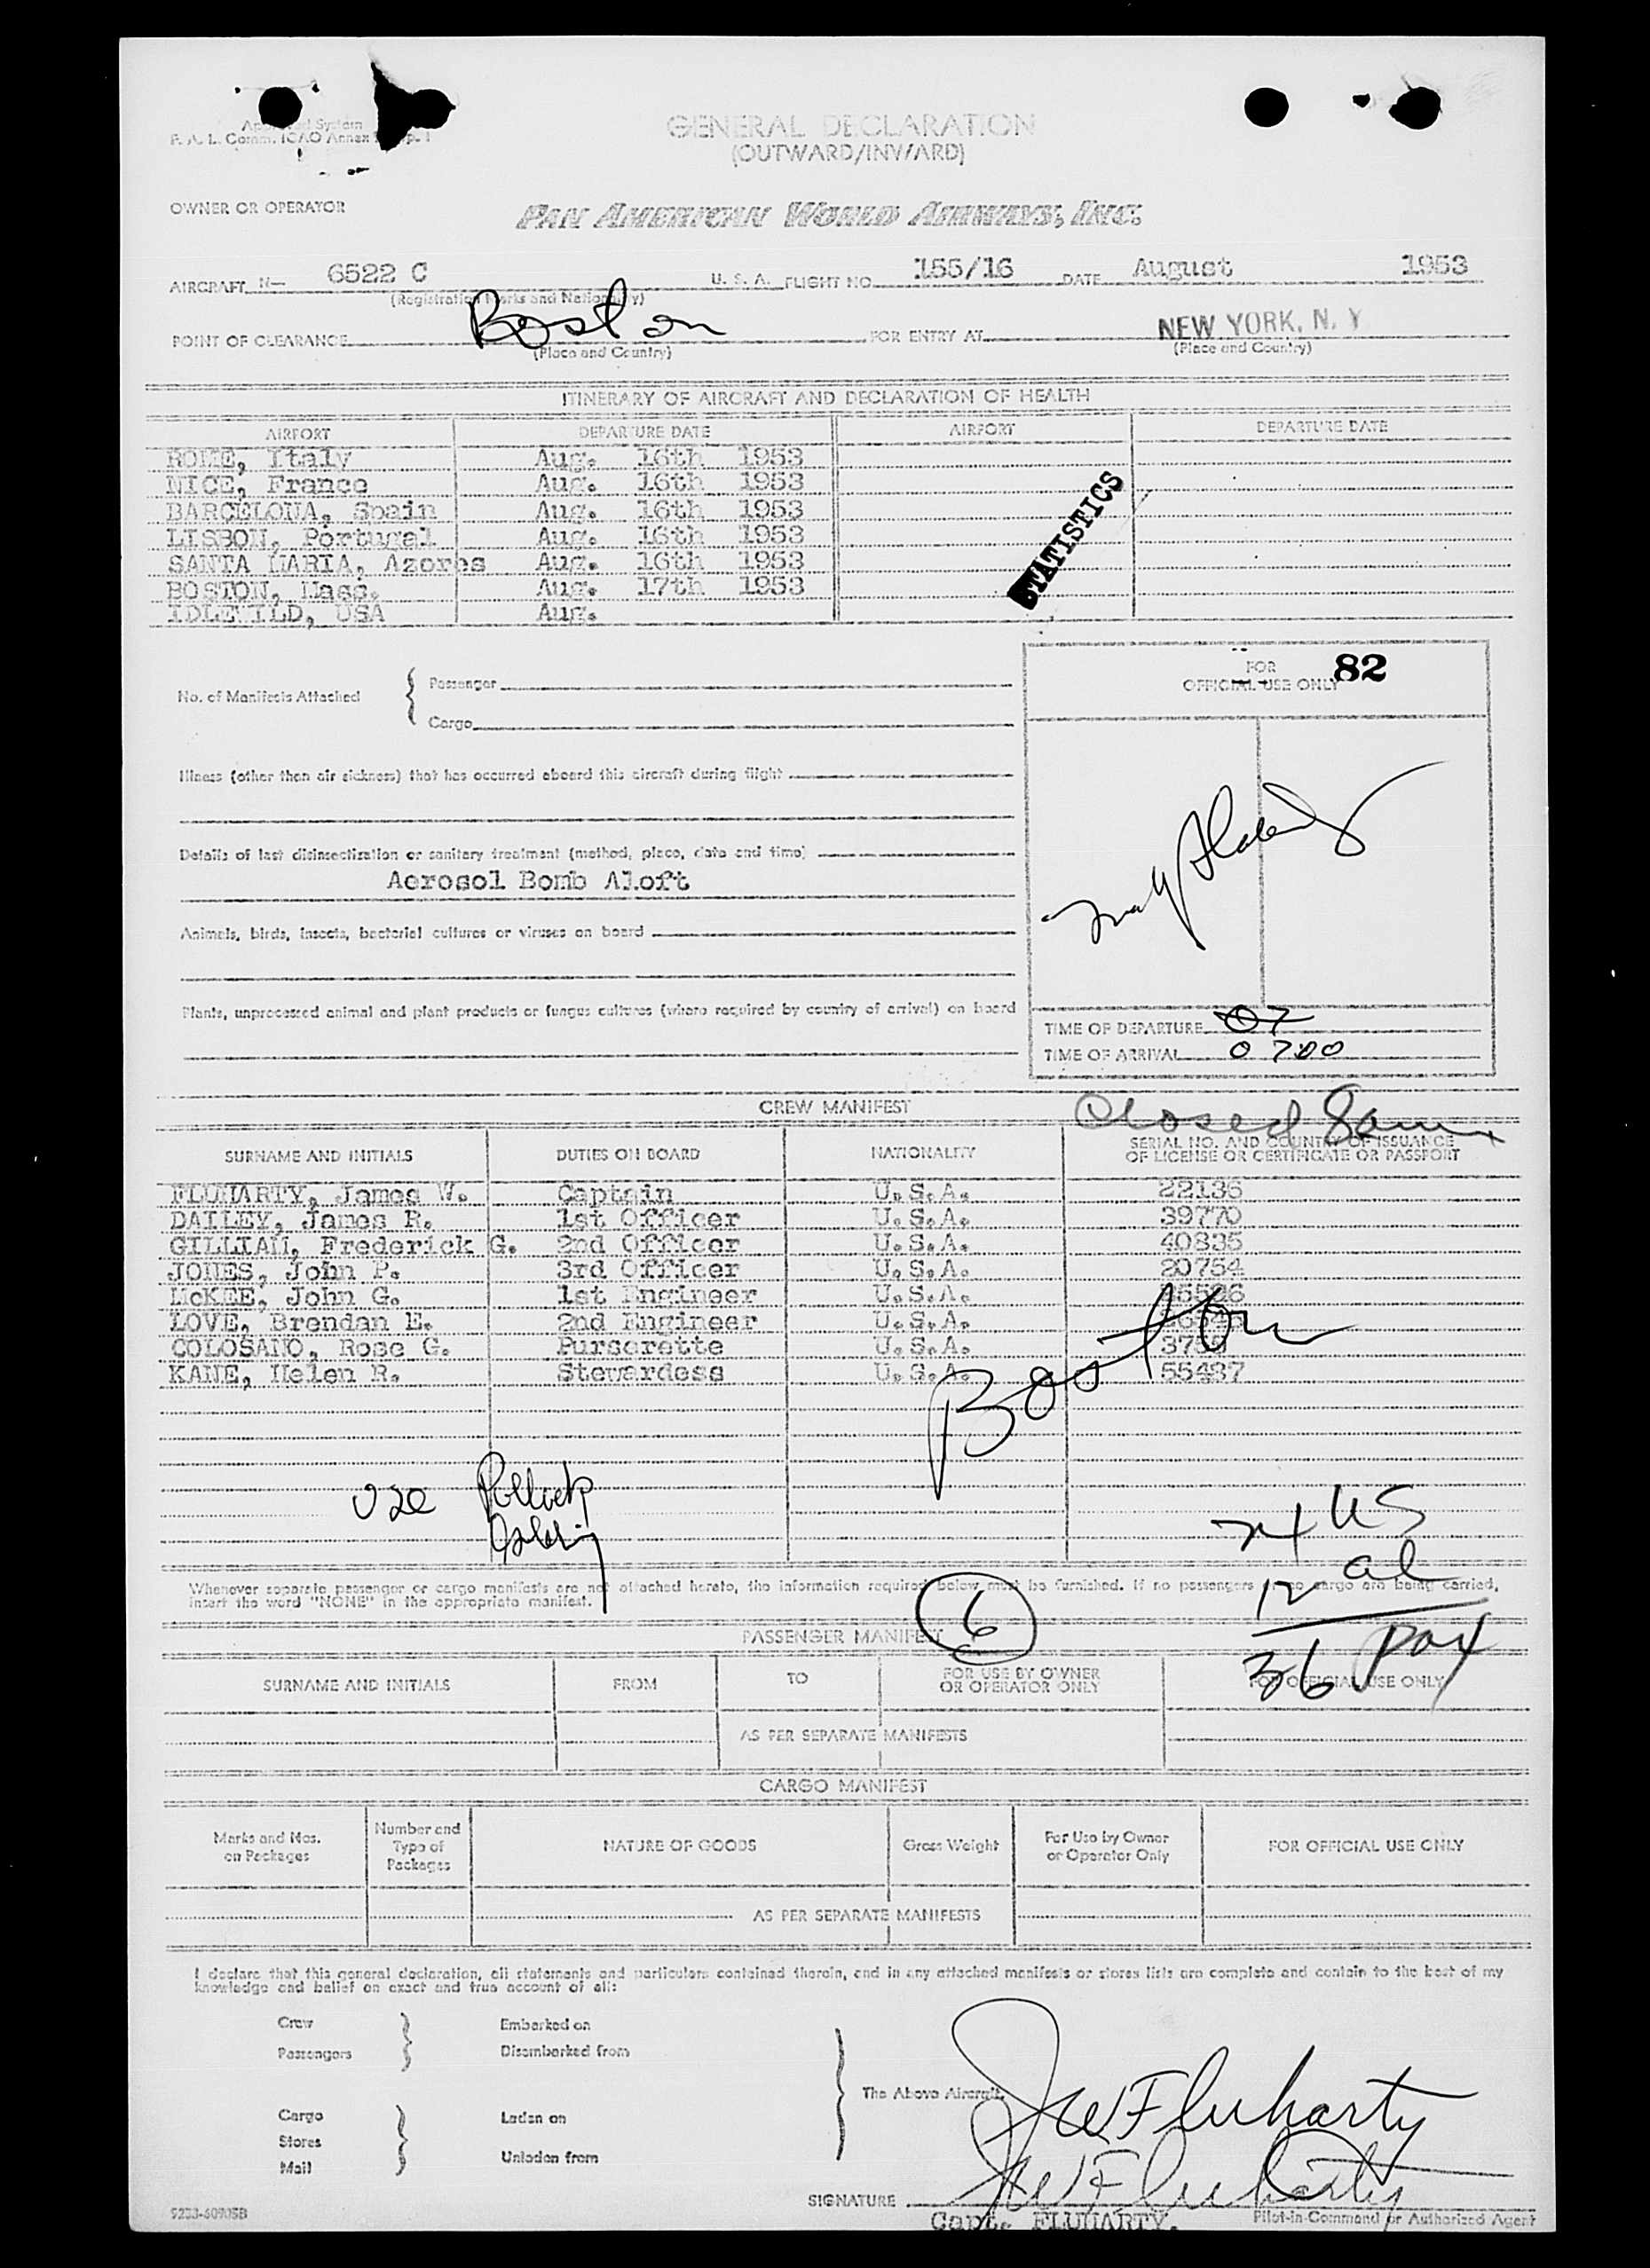 GENERAL DECLARATION
(OUTWARD/INWARD)
F. A. L. Comm. ICAO Annex
OWNER OR OPERATOR PAN AMERICAN WORLD AIRWAYS, INC.
AIRCRAFT N— 6522 C U. S. A. FLIGHT NO. 155/16 DATE August 1953
(Registration Marks and Nationality)
POINT OF CLEARANCE Boston FOR ENTRY AT NEW YORK, N. Y
(Place and Country) (Place and Country)
ITINERARY OF AIRCRAFT AND DECLARATION OF HEALTH
AIRPORT DEPARTURE DATE AIRPORT DEPARTURE DATE
ROME, Italy Aug. 16th 1953
NICE, France Aug. 16th 1953
BARCELONA, Spain Aug. 16th 1953
LISBON, Portugal Aug. 16th 1953
SANTA MARIA, Azores Aug. 16th 1953
BOSTON, Mass. Aug. 17th 1953
IDLEWILD, USA Aug.
STATISTICS
FOR
OFFICIAL USE ONLY 82
No. of Manifests Attached { Passenger
Cargo
Illness (other than air sickness) that has occurred aboard this aircraft during flight
Details of last disinsectization or sanitary treatment (method, place, date and time)
Aerosol Bomb Aloft
Animals, birds, insects, bacterial cultures or viruses on board
Plants, unprocessed animal and plant products or fungus cultures (where required by country of arrival) on board
TIME OF DEPARTURE 07
TIME OF ARRIVAL 0700
CREW MANIFEST
Closed
SURNAME AND INITIALS DUTIES ON BOARD NATIONALITY SERIAL NO. AND COUNTRY OF ISSUANCE
OF LICENSE OR CERTIFICATE OR PASSPORT
FLUHARTY, James W. Captain U.S.A. 22136
DAILEY, James R. 1st Officer U.S.A. 39770
GILLIAM, Frederick G. 2nd Officer U.S.A. 40835
JONES, John P. 3rd Officer U.S.A. 20754
McKEE, John G. 1st Engineer U.S.A.
LOVE, Brendan E. 2nd Engineer U.S.A.
COLOSANO, Rose G. Purserette U.S.A.
KANE, Helen R. Stewardess U.S.A. 55437
Boston
use Pollock
24 US
12 al
36 pax
Whenever separate passenger or cargo manifests are not attached hereto, the information required below must be furnished. If no passengers or no cargo are being carried,
insert the word "NONE" in the appropriate manifest.
6
PASSENGER MANIFEST
SURNAME AND INITIALS FROM TO FOR USE BY OWNER
OR OPERATOR ONLY FOR OFFICIAL USE ONLY
AS PER SEPARATE MANIFESTS
CARGO MANIFEST
Marks and Nos.
on Packages Number and
Type of
Packages NATURE OF GOODS Gross Weight For Use by Owner
or Operator Only FOR OFFICIAL USE ONLY
AS PER SEPARATE MANIFESTS
I declare that this general declaration, all statements and particulars contained therein, and in any attached manifests or stores lists are complete and contain to the best of my
knowledge and belief an exact and true account of all:
Crew Embarked on
Passengers Disembarked from
The Above Aircraft
Cargo Laden on
Stores
Mail Unladen from
JW Fluharty
JW Fluharty
SIGNATURE
Capt. FLUHARTY. Pilot-in-Command or Authorized Agent